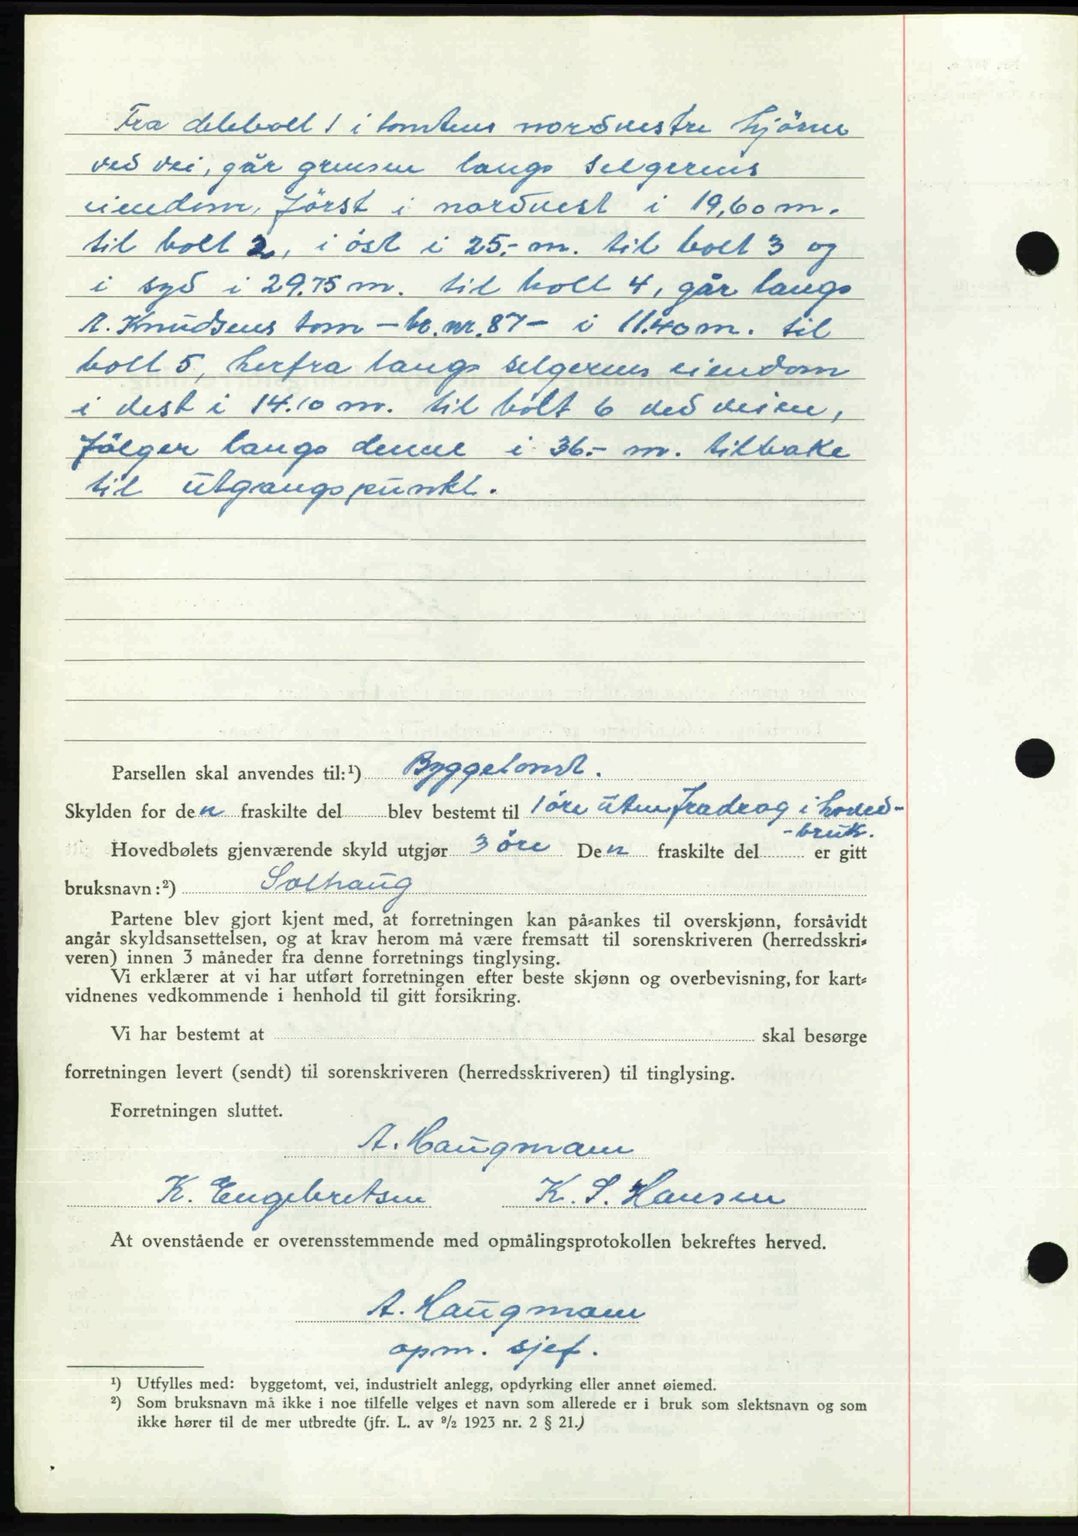 Fra delebolt 1 i tomtens nordvestre hjörne
ved vei, går grensen langs selgerens
eiendom, först i nordvest i 19,60 m.
til bolt 2, i öst i 25.- m. til bolt 3 og
i syd i 29.75 m. til bolt 4, går langs
A. Knudsens tom - br. nr. 87 - i 11.40 m. til
bolt 5, herfra langs selgerens eiendom
i vest i 14.10 m. til bolt 6 ved veien,
följer langs denne i 36.- m. tilbake
til utgangspunkt.
Parsellen skal anvendes til:¹) Byggetomt.
Skylden for den fraskilte del blev bestemt til 1 öre uten fradrag i hoved-
-bruk.
Hovedbølets gjenværende skyld utgjør 3 öre Den fraskilte del er gitt
bruksnavn:²) Solhaug
Partene blev gjort kjent med, at forretningen kan på=ankes til overskjønn, forsåvidt
angår skyldsansettelsen, og at krav herom må være fremsatt til sorenskriveren (herredsskri=
veren) innen 3 måneder fra denne forretnings tinglysing.
Vi erklærer at vi har utført forretningen efter beste skjønn og overbevisning, for kart=
vidnenes vedkommende i henhold til gitt forsikring.
Vi har bestemt at skal besørge
forretningen levert (sendt) til sorenskriveren (herredsskriveren) til tinglysing.
Forretningen sluttet.
A. Haugmann
K. Engebretsen K. S. Hansen
At ovenstående er overensstemmende med opmålingsprotokollen bekreftes herved.
A. Haugmann
opm. sjef.
¹) Utfylles med: byggetomt, vei, industrielt anlegg, opdyrking eller annet øiemed.
²) Som bruksnavn må ikke i noe tilfelle velges et navn som allerede er i bruk som slektsnavn og som
ikke hører til de mer utbredte (jfr. L. av ⁹/₂ 1923 nr. 2 § 21.)